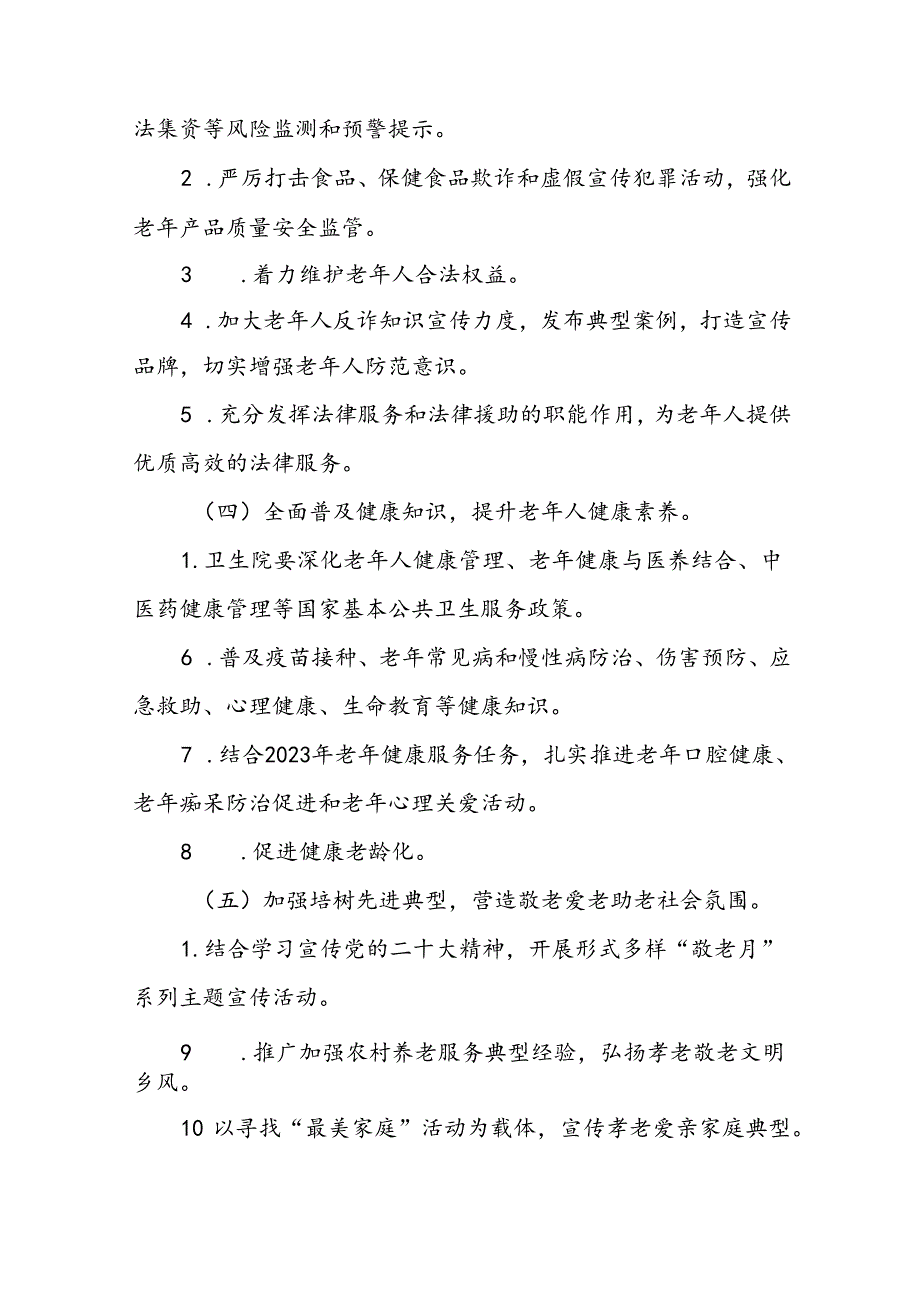 法集资等风险监测和预警提示。
2 .严厉打击食品、保健食品欺诈和虚假宣传犯罪活动，强化
老年产品质量安全监管。
3 .着力维护老年人合法权益。
4 .加大老年人反诈知识宣传力度，发布典型案例，打造宣传
品牌，切实增强老年人防范意识。
5 .充分发挥法律服务和法律援助的职能作用，为老年人提供
优质高效的法律服务。
（四）全面普及健康知识，提升老年人健康素养。
1.卫生院要深化老年人健康管理、老年健康与医养结合、中
医药健康管理等国家基本公共卫生服务政策。
6 .普及疫苗接种、老年常见病和慢性病防治、伤害预防、应
急救助、心理健康、生命教育等健康知识。
7 .结合2023年老年健康服务任务，扎实推进老年口腔健康、
老年痴呆防治促进和老年心理关爱活动。
8 .促进健康老龄化。
（五）加强培树先进典型，营造敬老爱老助老社会氛围。
1.结合学习宣传党的二十大精神，开展形式多样“敬老月”
系列主题宣传活动。
9 .推广加强农村养老服务典型经验，弘扬孝老敬老文明
乡风。
10 以寻找“最美家庭”活动为载体，宣传孝老爱亲家庭典型。